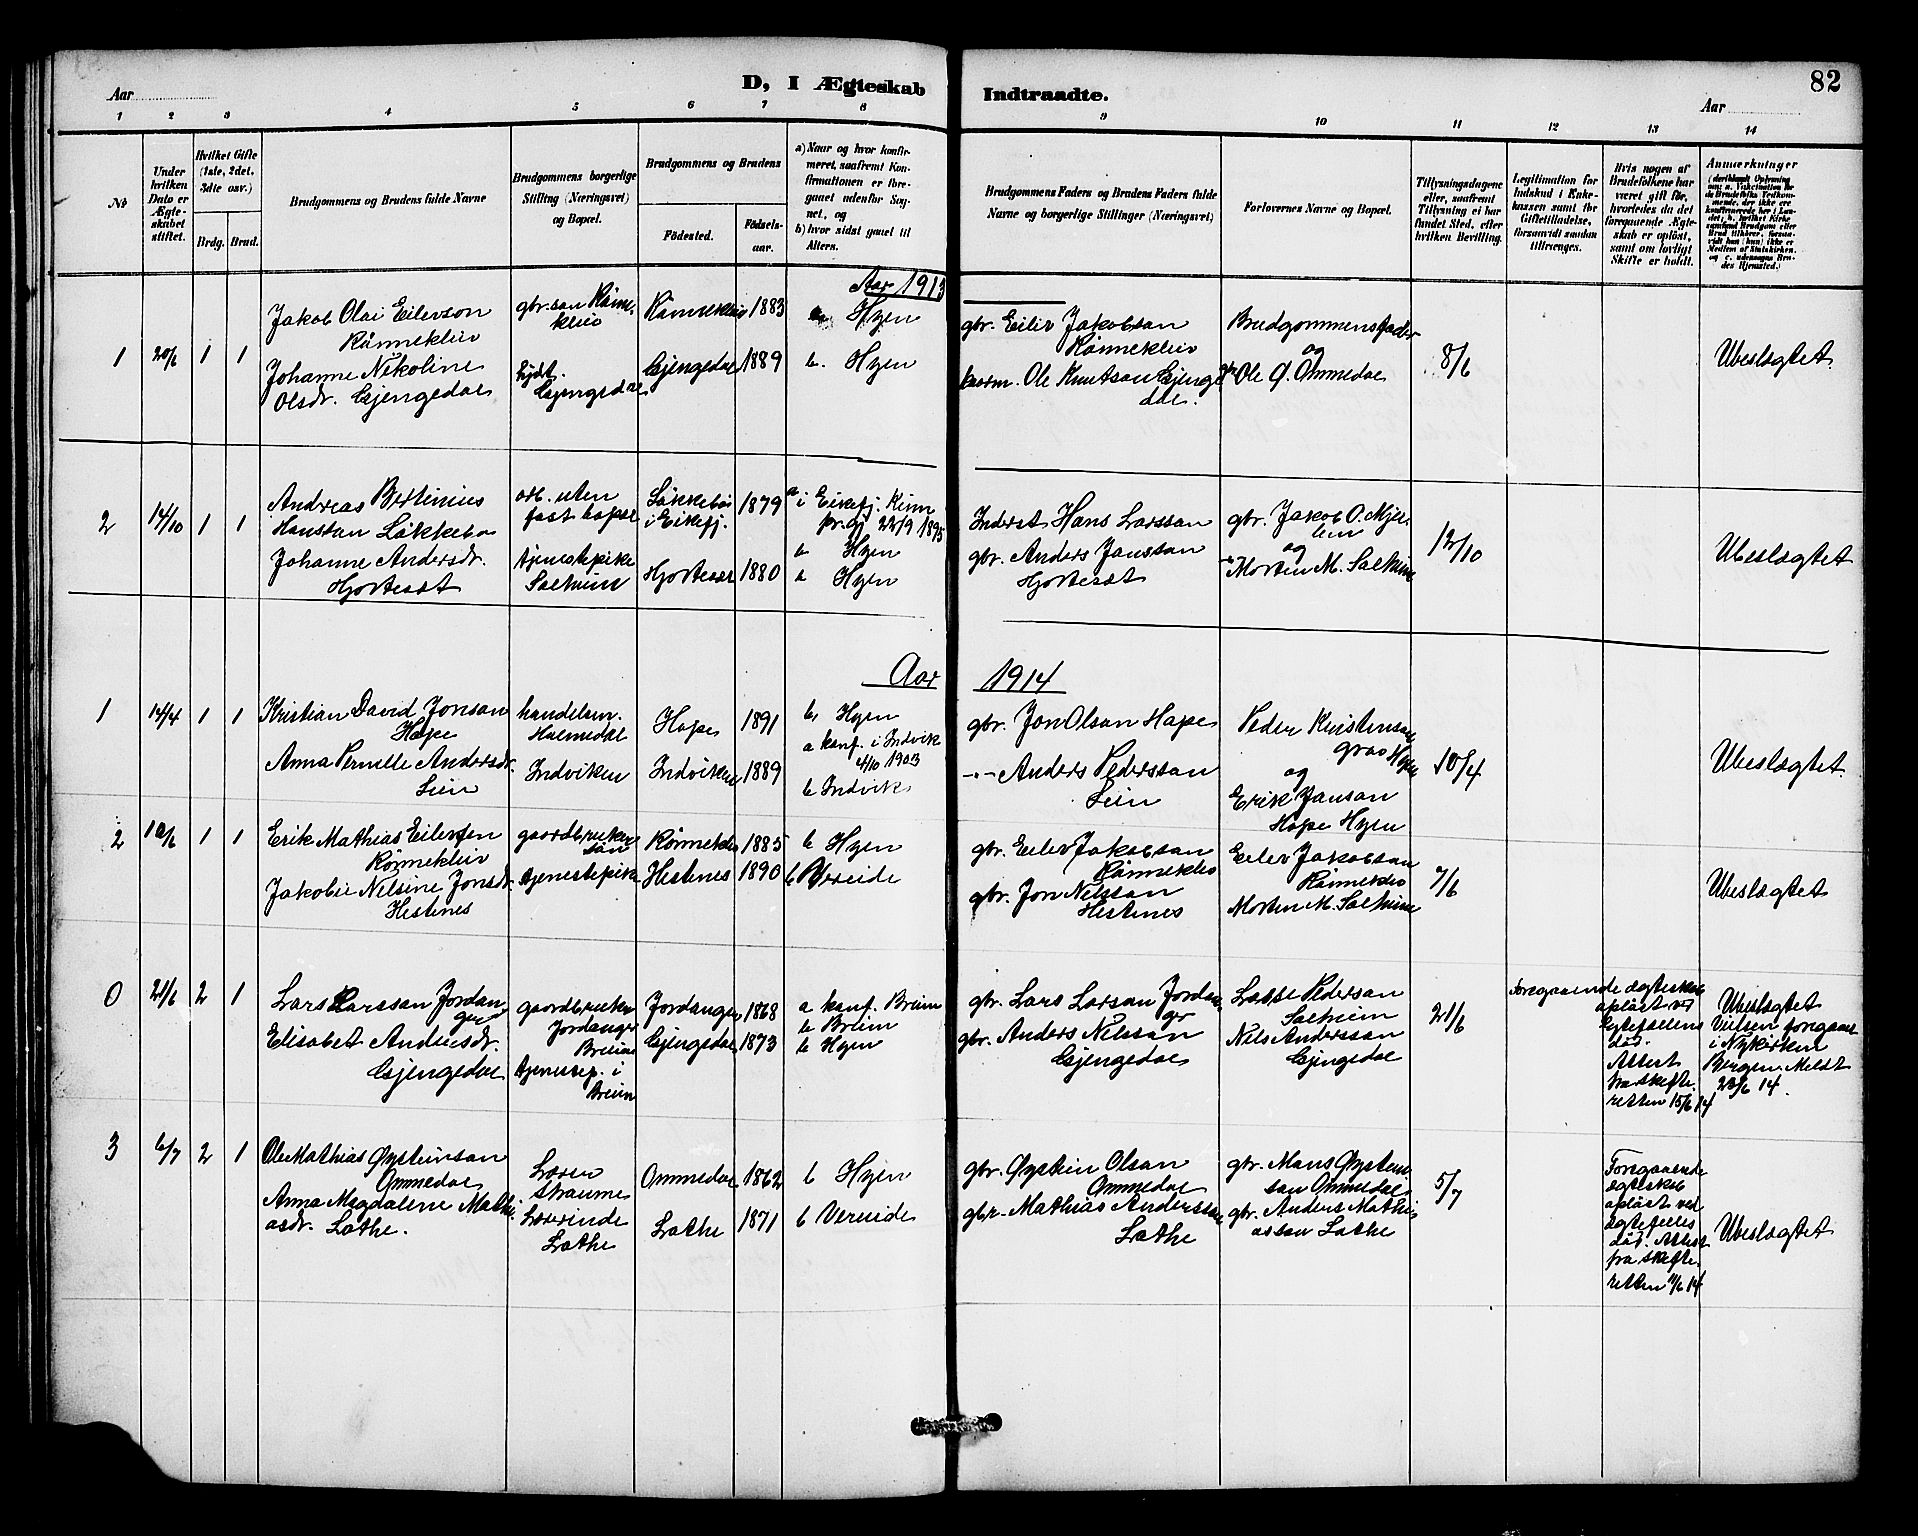 82
D, I Ægteskab Indtraadte.
Aar
Aar
1 2 3 4 5 6 7 8 9 10 11 12 13 14
No
Under
hvilken
Dato er
Ægte-
skabet
stiftet.
Hvilket Gifte
(1ste, 2det,
3die osv.)
Brdg. Brud.
Brudgommens og Brudens fulde Navne
Brudgommens borgerlige
Stilling (Næringsvei)
og Bopæl.
Brudgommens og Brudens
Födested.
Födsels-
aar.
a) Naar og hvor konfir-
meret, saafremt Kon-
firmationen er fore-
gaaet udenfor Sog-
net, og
b) hvor sidst gaaet til
Alters.
Brudgommens Faders og Brudens Faders fulde
Navne og borgerlige Stillinger (Næringsvei)
Forlovernes Navne og Bopæl.
Tillysningsdagene
eller, saafremt
Tillysning ei har
fundet Sted, efter
hvilken Bevilling.
Legitimation for
Indskud i Enke-
kassen samt for
Giftetilladelse,
forsaavidt saadan
tiltrænges.
Hvis nogen af
Brudefolkene har
været gift før,
hvorledes da det
foregaaende Ægte-
skab er opløst,
samt om lovligt
Skifte er holdt.
Anmærkninger
Aar 1913
1 20/6 1 1
Jakob Olai Eilevson
Rønnekleiv
Johanne Nikoline
Olsdr. Gjengedal
gbr. søn Rønne-
kleiv
Gjengedal
Rønnekleiv 1883
Gjengedal 1889
Hyen
b. Hyen
gbr. Eiliv Jakobsøn
Rønnekleiv
kaarm. Ole Knutsøn Gjenge
dal.
Brudgommens fader
og
Ole Ø. Ommedal
8/6
Ubeslægtet
2 14/10 1 1
Andreas Bertinius
Hansson Løkkebø
Johanne Andersdr.
Hjortesæt
arb. uten
fast bopæl
tjenestepike
Solheim
Løkkebø
i Eikefj.
Hjortesæt
1879
1880
a i Eikefj. Kinn
pr.gj. 22/9 1895
b Hyen
b Hyen
Inderst Hans Larsson
gbr. Anders Jansson
Hjortesæt
gbr. Jakob O. Mjel-
lem
og
Morten M. Solheim
12/10
Ubeslægtet
Aar 1914
1 14/4 1 1
Kristian David Jonson
Hope
Anna Pernelle Andersdr.
Lien
handelsm.
Holmedal
Indviken
Hope 1891
Indviken 1889
b. Hyen
a konf. i Indvik
4/10 1903
b Indvik
gbr. Jon Olson Hope
-"- Anders Pederson
Lien
Peder Kristenson
Hyen
og
Erik Janson
Hope Hyen
10/4
Ubeslægtet
2 10/6 1 1
Erik Mathias Eilevsen
Rønnekleiv
Jakobie Nelsine Jonsdr.
Hestenes
gaardbruker
søn
tjenestepike
Rønneklev 1885
Hestenes 1890
b Hyen
b Vereide
gbr. Eilev Jakobson
Rønneklev
gbr. Jon Nelsson
Hestenes
Eilev Jakobson
Rønneklev
Morten M. Solheim
7/6
Ubeslægtet
0 21/6 2 1
Lars Larsson Jordan
ger
Elisabet Andersdr.
Gjengedal
gaardbruker
Jordanger
Breim
tjenestep. i
Breim
Jordanger 1868
Gjengedal 1873
a konf. Breim
b Breim
b Hyen
gbr. Lars Larson Jordan
ger
gbr. Anders Nilsson
Gjengedal
Lasse Pederson
Solheim
Nils Andersson
Gjengedal
21/6
Foregaaende ægteskab
opløst ved
Ægtefellens
død.
Attest
fra skifte-
retten 15/6 14
Ubeslægtet
Vielsen foregaat
i Nykirken
Bergen. Meldt
23/6 14.
3 6/7 2 1
Ole Mathias Øysteinson
Ommedal
Anna Magdalene Mathi-
asdr. Lothe.
Lærer
Straume
Lærerinde
Lothe
Ommedal 1862
Lothe 1871
b Hyen
b Vereide
gbr. Øystein Olsan
Ommedal
gbr. Mathias Anderssøn
Lothe
gbr. Mons Øystein
son Ommedal
gbr. Anders Mathi
asson Lothe
5/7
Foregaaende
ægteskab
opløst ved
ægtefelles
død. Attest
fra skifte-
retten 11/6 14
Ubeslægtet